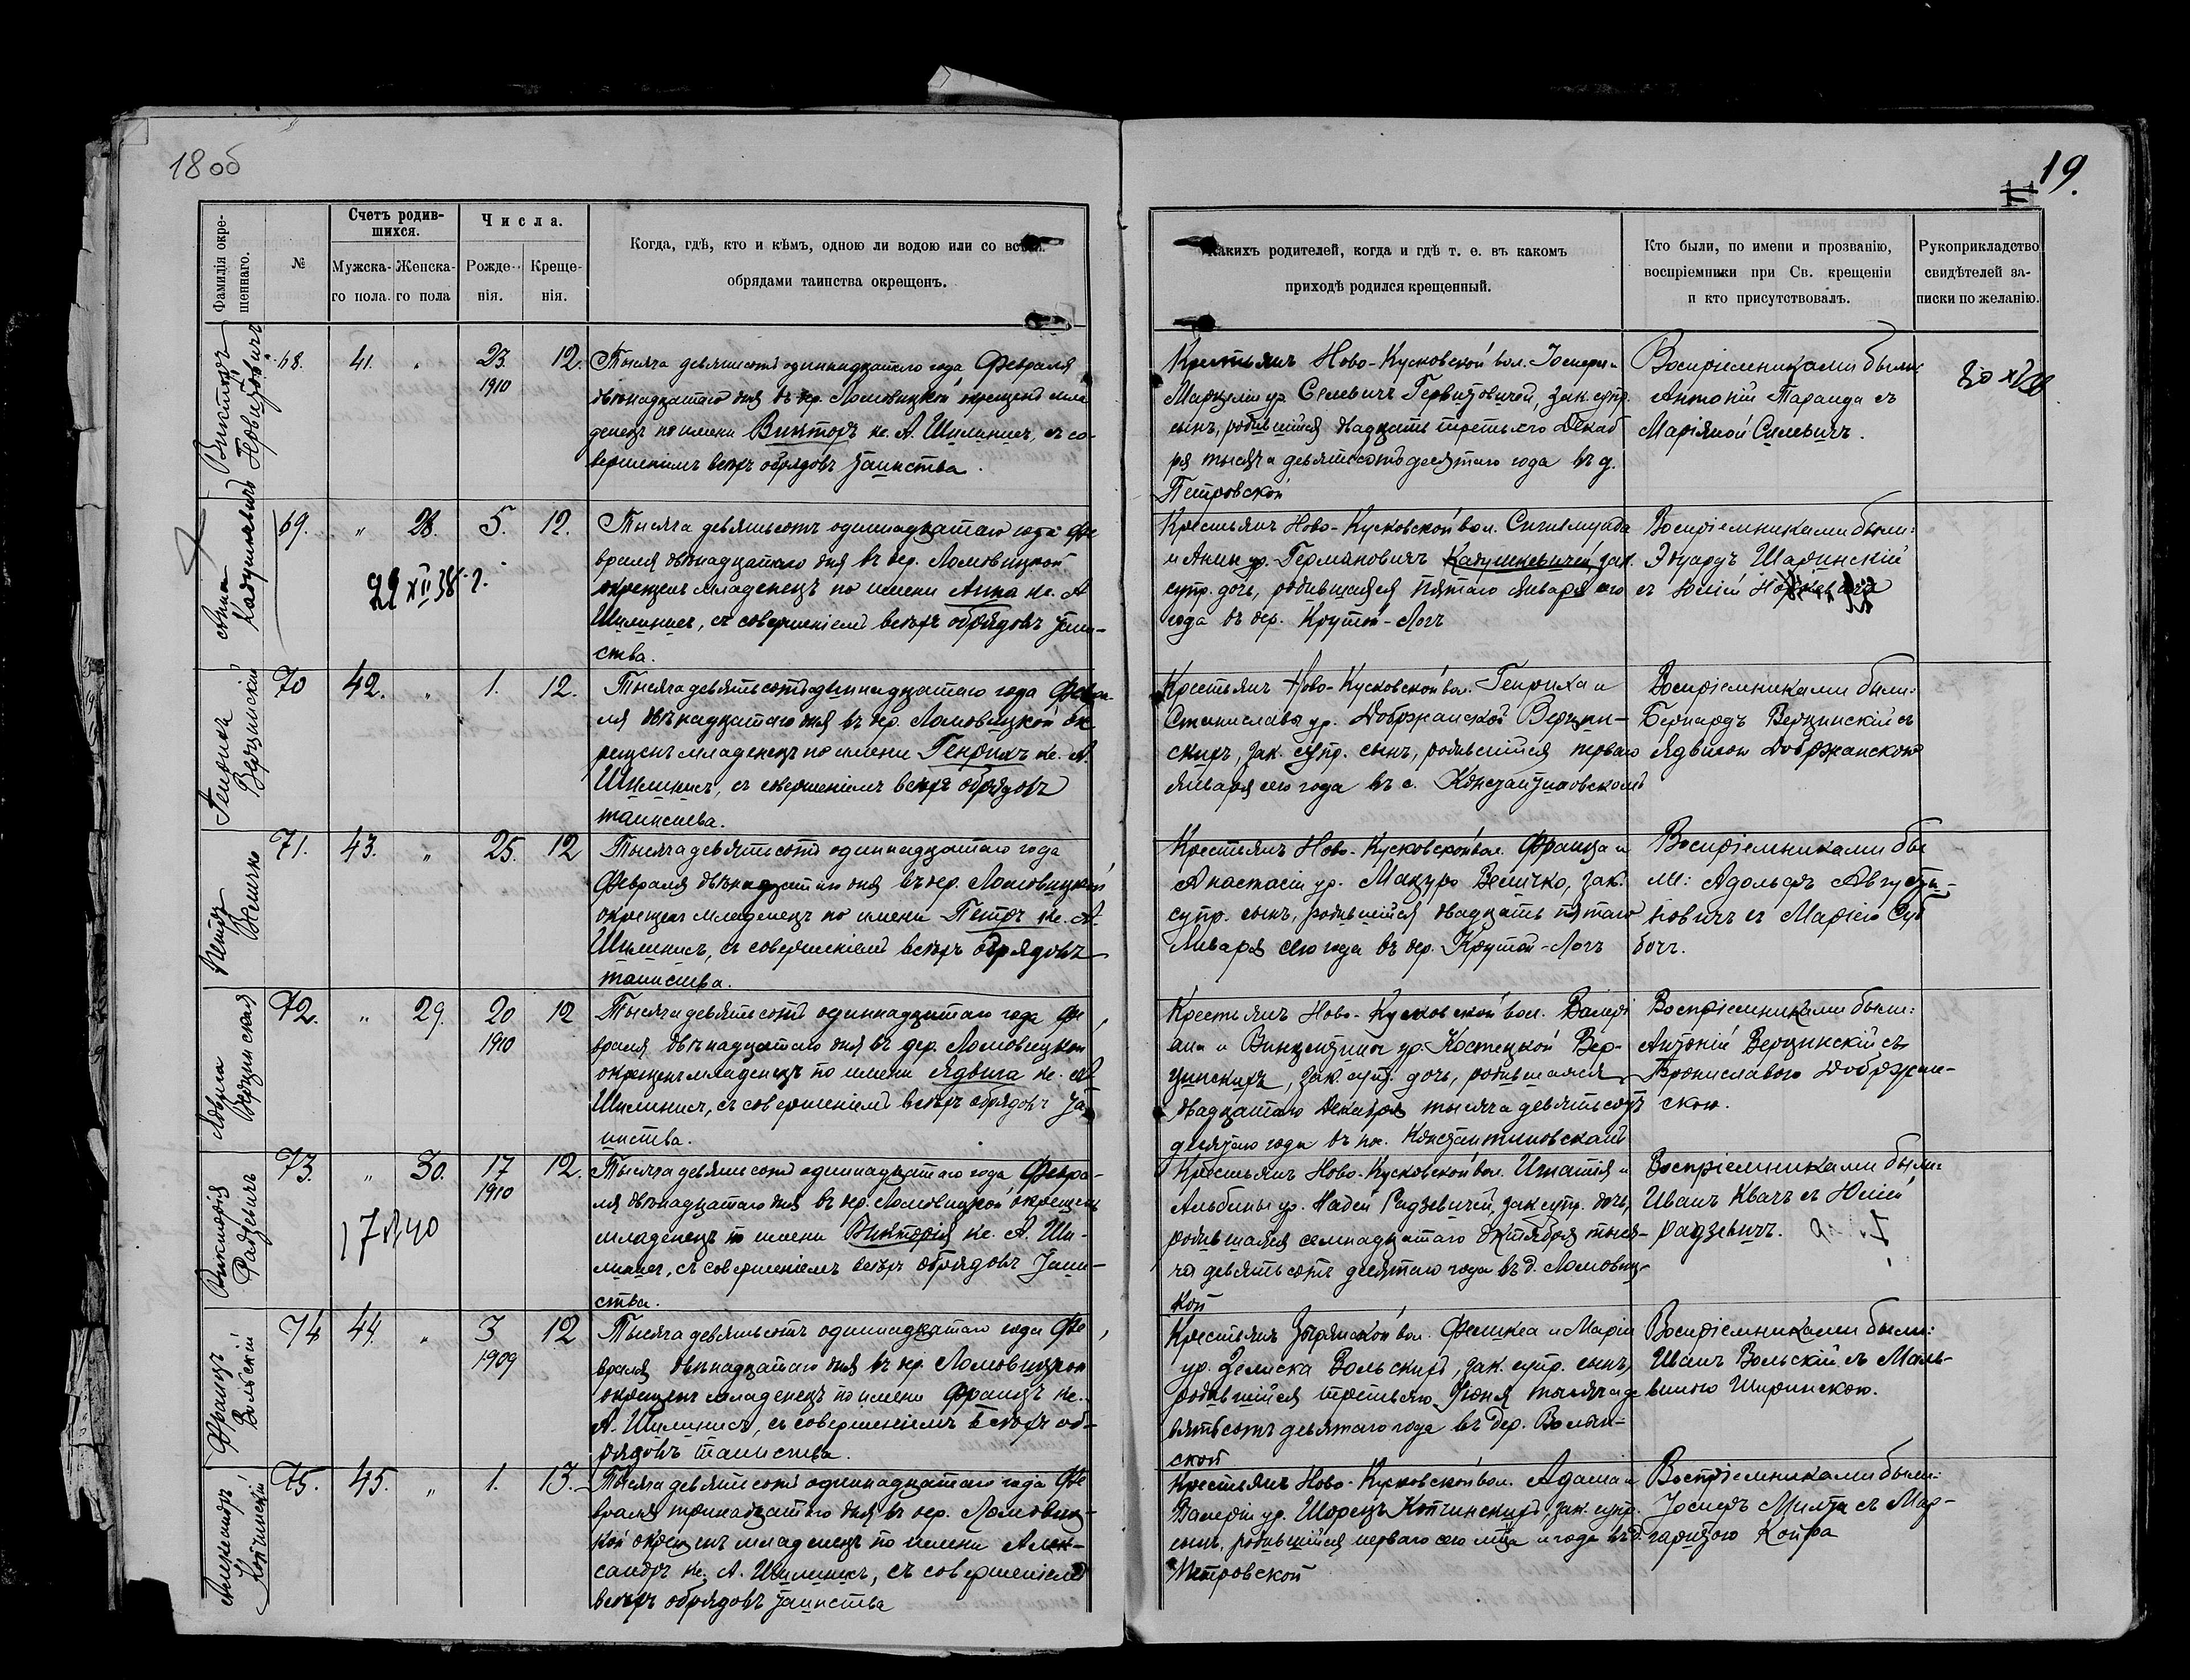 18 об
19.
Фамилія окре-
щеннаго.
№
Счетъ родив-
шихся.
Мужска-
го пола.
Женска-
го пола
Числа.
Рожде-
нія.
Креще-
нія.
Когда, гдѣ, кто и кѣмъ, одною ли водою или со всѣми
обрядами таинства окрещенъ.
Какихъ родителей, когда и гдѣ т. е. въ какомъ
приходѣ родился крещенный.
Кто были, по имени и прозванію,
воспріемники при Св. крещеніи
и кто присутствовалъ.
Рукоприкладство
свидѣтелей за-
писки по желанію.
Викторъ
68. 41. „ 23. 1910 12.
Тысяча девятьсотъ одиннадцатаго года Февраля
двѣнадцатаго дня въ дер. Ломовицкой окрещенъ мла
денецъ по имени Викторъ кс. А. Шилинисъ, съ со-
вершеніемъ всѣхъ обрядовъ таинства.
Крестьянъ Ново-Кусковской вол. Іосифа и
Марцеліи ур. Селевичъ Гервидовичей, зак. супр.
сынъ, родившійся двадцать третьяго Декаб
ря тысяча девятьсотъ десятаго года въ д.
Петровской
Воспріемниками были
Антоній Таранда съ
Маріяной Силевичъ.
Анна
Кадушкевичъ
69. „ 28. 5. 12.
22 XII 38 г.
Тысяча девятьсотъ одиннадцатаго года Фе
враля двѣнадцатаго дня въ дер. Ломовицкой
окрещенъ младенецъ по имени Анна кс. А
Шилинисъ, съ совершеніемъ всѣхъ обрядовъ таин-
ства.
Крестьянъ Ново-Кусковской вол. Сигизмунда
и Анны ур. Германовичъ Кадушкевичей, зак.
супр. дочь, родившаяся пятаго Января сего
года въ дер. Крутой-Логъ
Воспріемниками были:
Эдуардъ Шадинскій
съ Юліей
Генрихъ
Верцинскій
70 42. „ 1. 12.
Тысяча девятьсотъ одиннадцатаго года Февра
ля двѣнадцатаго дня въ дер. Ломовицкой ок
рещенъ младенецъ по имени Генрихъ кс. А.
Шилинисъ, съ совершеніемъ всѣхъ обрядовъ
таинства.
Крестьянъ Ново-Кусковской вол. Генриха и
Станиславы ур. Добржанской Верцин-
скихъ, зак. супр. сынъ, родившійся перваго
Января сего года въ с. Константиновскомъ
Воспріемниками были:
Бернардъ Верцинскій съ
Ядвигою Добржанскою
Петръ
Величко
71. 43. „ 25. 12
Тысяча девятьсотъ одиннадцатаго года
Февраля двѣнадцатаго дня въ дер. Ломовицкой
окрещенъ младенецъ по имени Петръ кс. А.
Шилинисъ, съ совершеніемъ всѣхъ обрядовъ
таинства.
Крестьянъ Ново-Кусковской вол. Франца и
Анастасіи ур. Мацуро Величко, зак.
супр. сынъ, родившійся двадцать пятаго
Января сего года въ дер. Крутой-Логъ
Воспріемниками бы
ли: Адольфъ Августи-
новичъ съ Маріею Суб
бочъ.
Ядвига
Верцинская
72. „ 29. 20 1910 12
Тысяча девятьсотъ одиннадцатаго года Фе
враля двѣнадцатаго дня въ дер. Ломовицкой
окрещенъ младенецъ по имени Ядвига кс. А
Шилинисъ, съ совершеніемъ всѣхъ обрядовъ та
инства.
Крестьянъ Ново-Кусковской вол. Валері
ана и Винцентины ур. Костецкой Вер-
цинскихъ, зак. супр. дочь, родившаяся
двадцатаго Декабря тысяча девятьсотъ
десятаго года въ пос. Константиновскомъ
Воспріемниками были:
Антоній Верцинскій съ
Брониславою Добржан-
скою.
Викторія
Радзевичъ
73. „ 30. 17 1910 12.
Тысяча девятьсотъ одиннадцатаго года Февра-
ля двѣнадцатаго дня въ дер. Ломовицкой окрещенъ
младенецъ по имени Викторія кс. А. Ши-
линисъ, съ совершеніемъ всѣхъ обрядовъ таин-
ства.
Крестьянъ Ново-Кусковской вол. Игнатія и
Альбины ур. Радзевичей, зак. супр. дочь,
родившаяся семнадцатаго Октября тыся-
ча девятьсотъ десятаго года въ д. Ломовиц-
кой
Воспріемниками были:
Иванъ Квачъ съ Юліей
Радзевичъ.
Францъ
Вольскій
74 44. „ 3 1909 12
Тысяча девятьсотъ одиннадцатаго года Фе
враля двѣнадцатаго дня въ дер. Ломовицкой
окрещенъ младенецъ по имени Францъ кс.
А. Шилинисъ, съ совершеніемъ всѣхъ об-
рядовъ таинства.
Крестьянъ Зырянской вол. Феликса и Маріи
ур. Зелиска Вольскихъ, зак. супр. сынъ,
родившійся третьяго Іюня тысяча де
вятьсотъ девятаго года въ дер. Волын-
ской
Воспріемниками были:
Иванъ Вольскій съ Маль-
виною Ширинскою.
Александръ
Копчинскій
75. 45. „ 1. 13.
Тысяча девятьсотъ одиннадцатаго года Фе
враля тринадцатаго дня въ дер. Ломовиц-
кой окрещенъ младенецъ по имени Алек-
сандръ кс. А. Шилинисъ, съ совершеніемъ
всѣхъ обрядовъ таинства
Крестьянъ Ново-Кусковской вол. Адама и
Валеріи ур. Шорецъ Копчинскихъ, зак. супр.
сынъ, родившійся перваго сего мѣсяца и года въ д.
Петровской
Воспріемниками были:
Іосифъ Милта съ Мар-
гаритою Копра